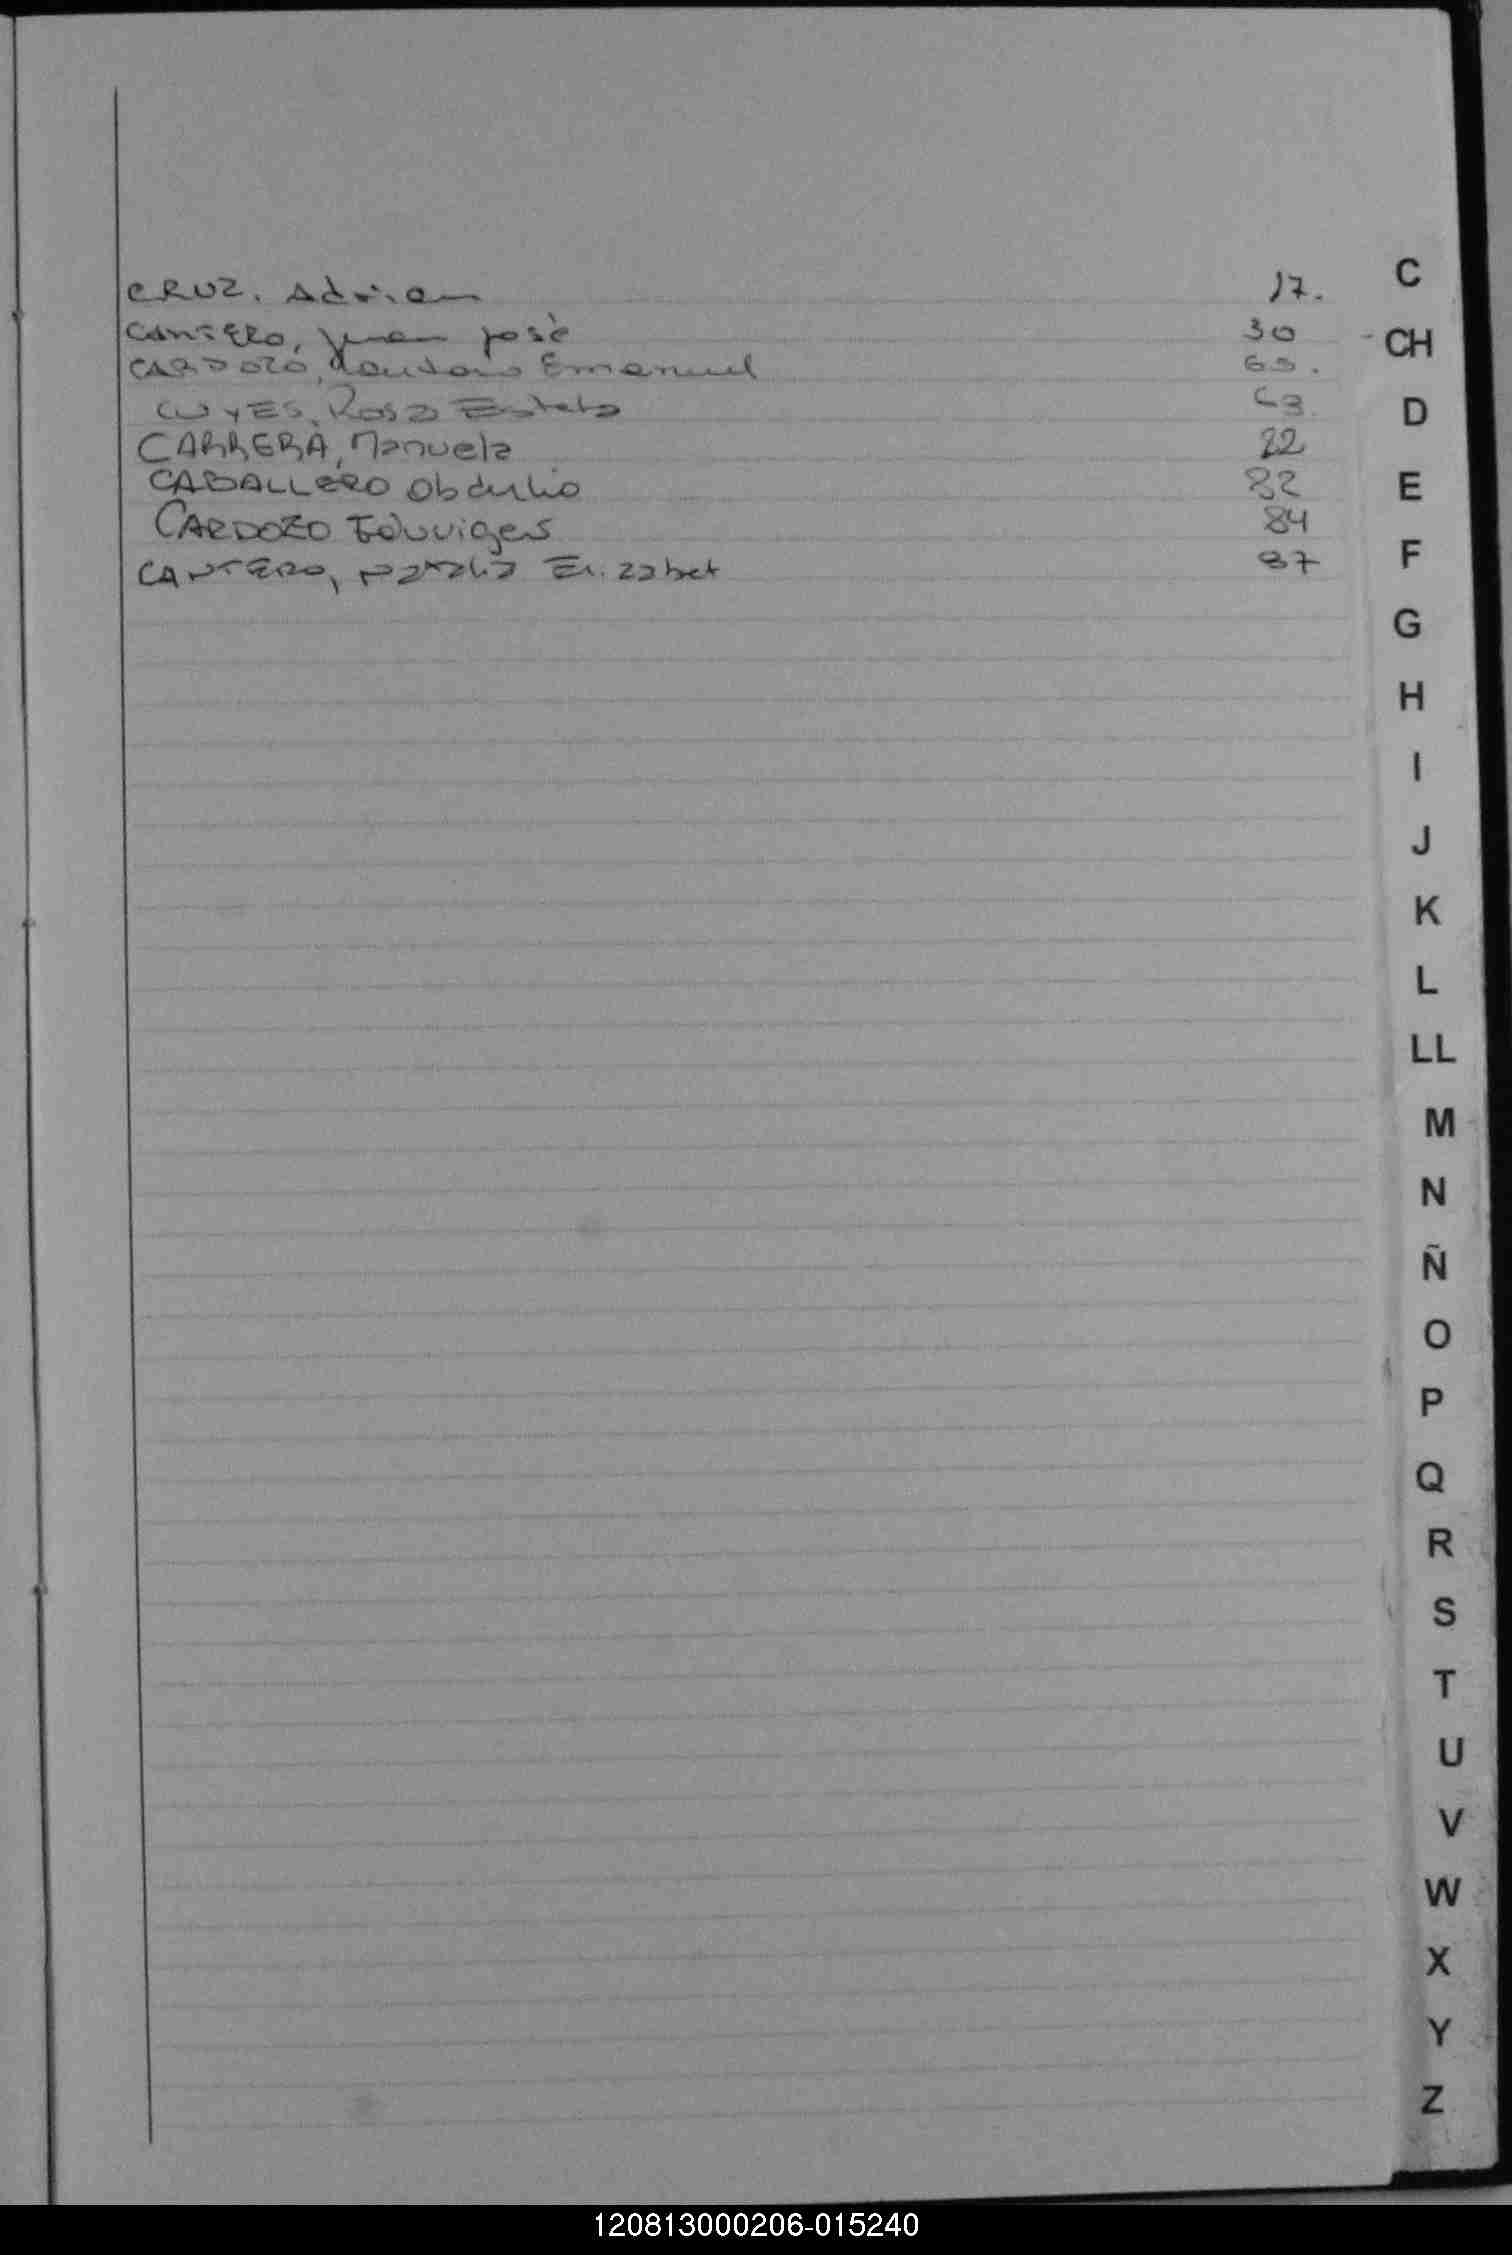 CRUZ. Adrian 17.
CANTERO, Juan José 30
CARDOZO, Emanuel
CUYES, Rosa Estela 63.
CARRERA, Manuela
CABALLERO Obdulio 82
CARDOZO Eduviges 84
CANTERO, Natalia Elizabet 87
C
CH
D
E
F
G
H
I
J
K
L
LL
M
N
Ñ
O
P
Q
R
S
T
U
V
W
X
Y
Z
120813000206-015240